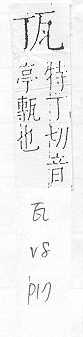 ⿰丁瓦
特丁切音
亭甎也
瓦
vs
p17